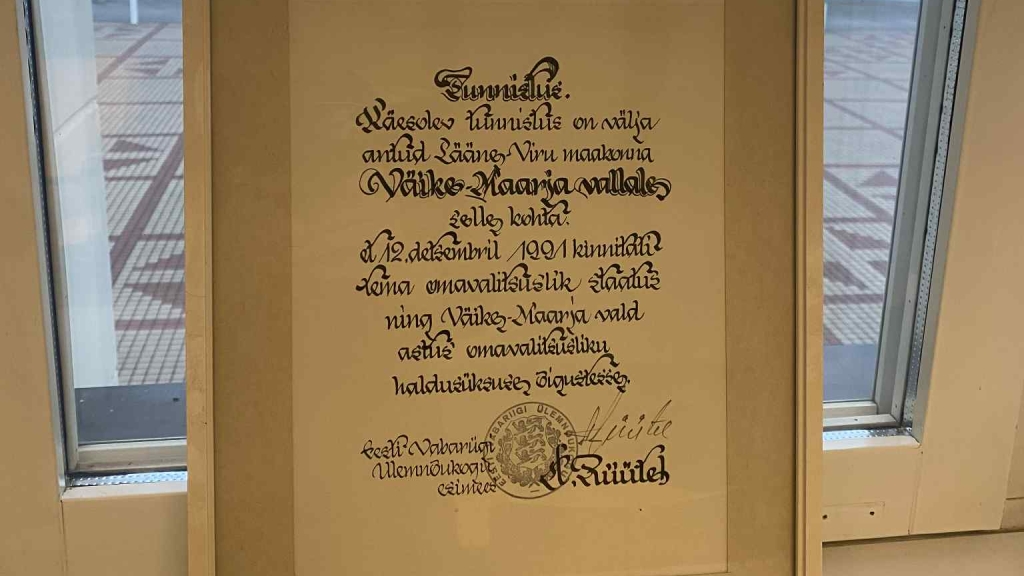 Tunnistus.
Käesolev tunnistus on välja
antud Lääne-Viru maakonna
Väike-Maarja vallale
selle kohta,
et 12. detsembril 1991 kinnitati
tema omavalitsuslik staatus
ning Väike-Maarja vald
astus omavalitsusliku
haldusüksuse õigustesse.
Eesti Vabariigi
Ülemnõukogu
esimees
A. Rüütel